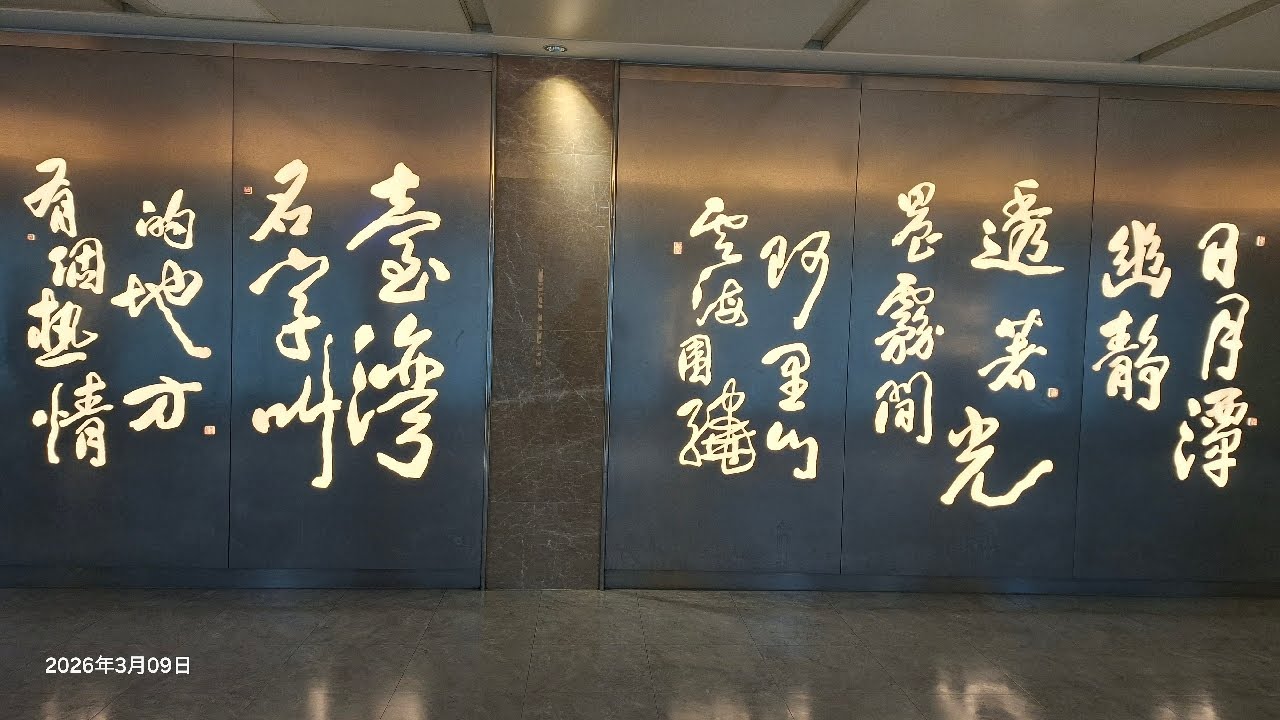 日月潭
幽靜
透著光
晨霧間
阿里山
雲海圍繞
臺灣
名字叫
的地方
有個热情
2026年3月09日